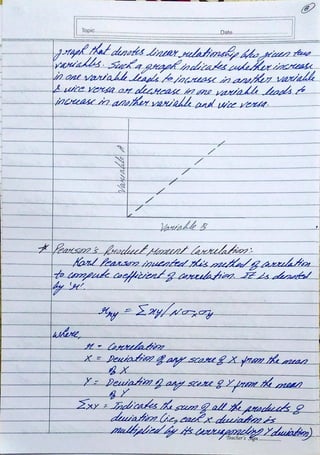 8
Topic
Date
graph that denotes linear relationship b/w given two
variables. Such a graph indicates whether increase
in one variable leads to increase in another variable
& vice versa or decrease in one variable leads to
increase in another variable and vice versa.
Variable A
Variable B
* Pearson's Product Moment Correlation:
Karl Pearson invented this method of correlation
to compute coefficient of correlation. It is denoted
by 'r'.
rxy = Σxy/Nσxσy
where,
r = Correlation
x = Deviation of any score of X from the mean
of X
Y = Deviation of any score of Y from the mean
of Y
Σxy = Indicates the sum of all the products of
deviation (ie, each x deviation is
multiplied by its corresponding Y deviation)
Teacher's Sign